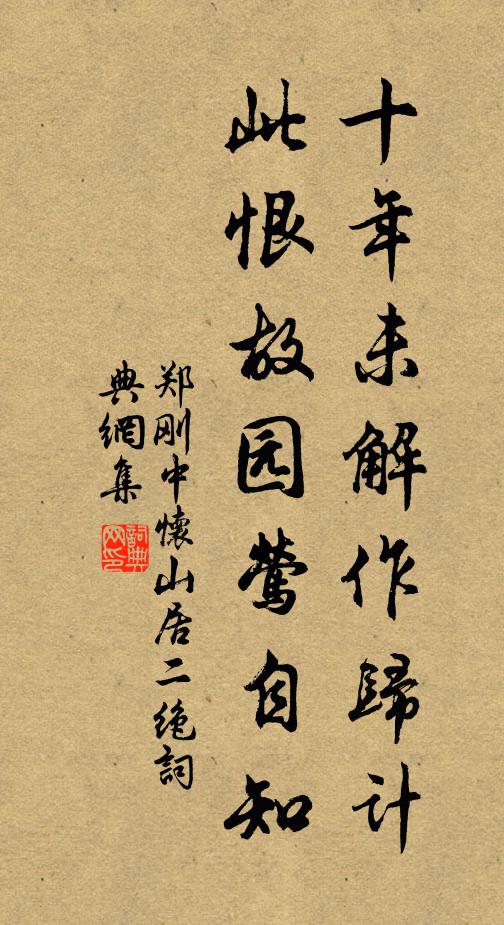 十年未解作歸计
此恨故园莺自知
郑刚中懷山居二绝詞
典網集
詞典网印